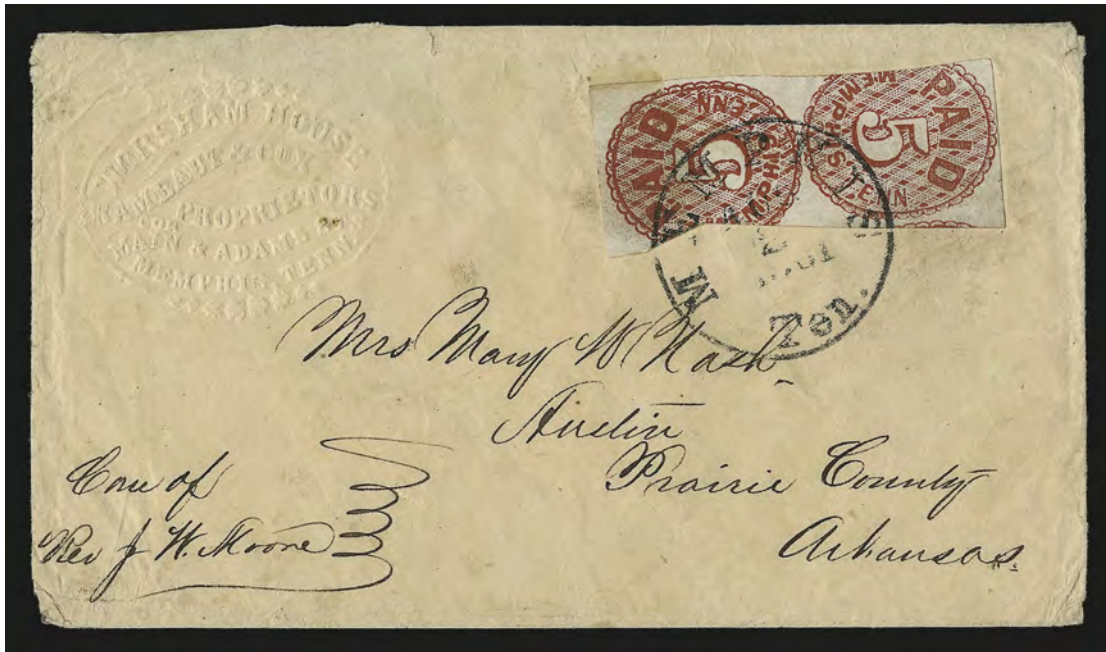 WORSHAM HOUSE
PROPRIETORS
COR MAIN & ADAMS STS
MEMPHIS TENN.
PAID
5
MEMPHIS TENN
PAID
5
MEMPHIS TENN
MEMPHIS
Ten.
Mrs Mary W Nash
Austin
Prairie County
Arkansas.
Care of
Rev J W. Moore